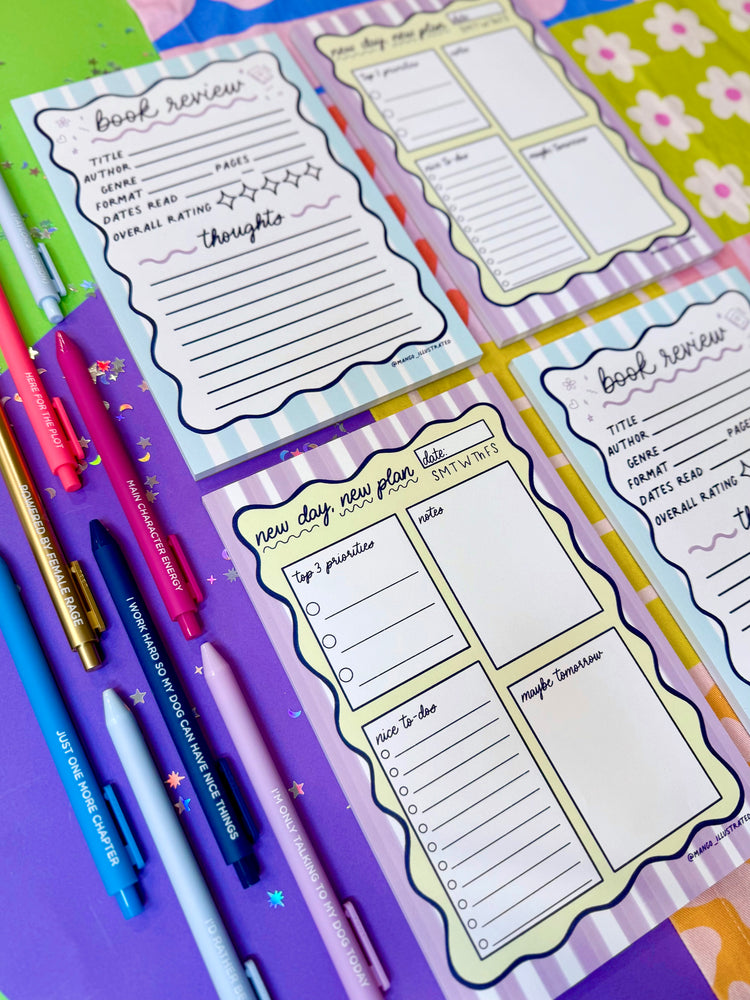 book review
TITLE
AUTHOR
GENRE PAGES
FORMAT
DATES READ
OVERALL RATING
thoughts
@MANGO_ILLUSTRATED
new day, new plan
date:
SMTWThFS
top 3 priorities
notes
nice to-dos
maybe tomorrow
book review
TITLE
AUTHOR
GENRE PAGE
FORMAT
DATES READ
OVERALL RATING
th
new day, new plan
date:
SMTWThFS
top 3 priorities
notes
nice to-dos
maybe tomorrow
@MANGO_ILLUSTRATED
HERE FOR THE PLOT
MAIN CHARACTER ENERGY
POWERED BY FEMALE RAGE
I WORK HARD SO MY DOG CAN HAVE NICE THINGS
JUST ONE MORE CHAPTER
I'M ONLY TALKING TO MY DOG TODAY
I'D RATHER B